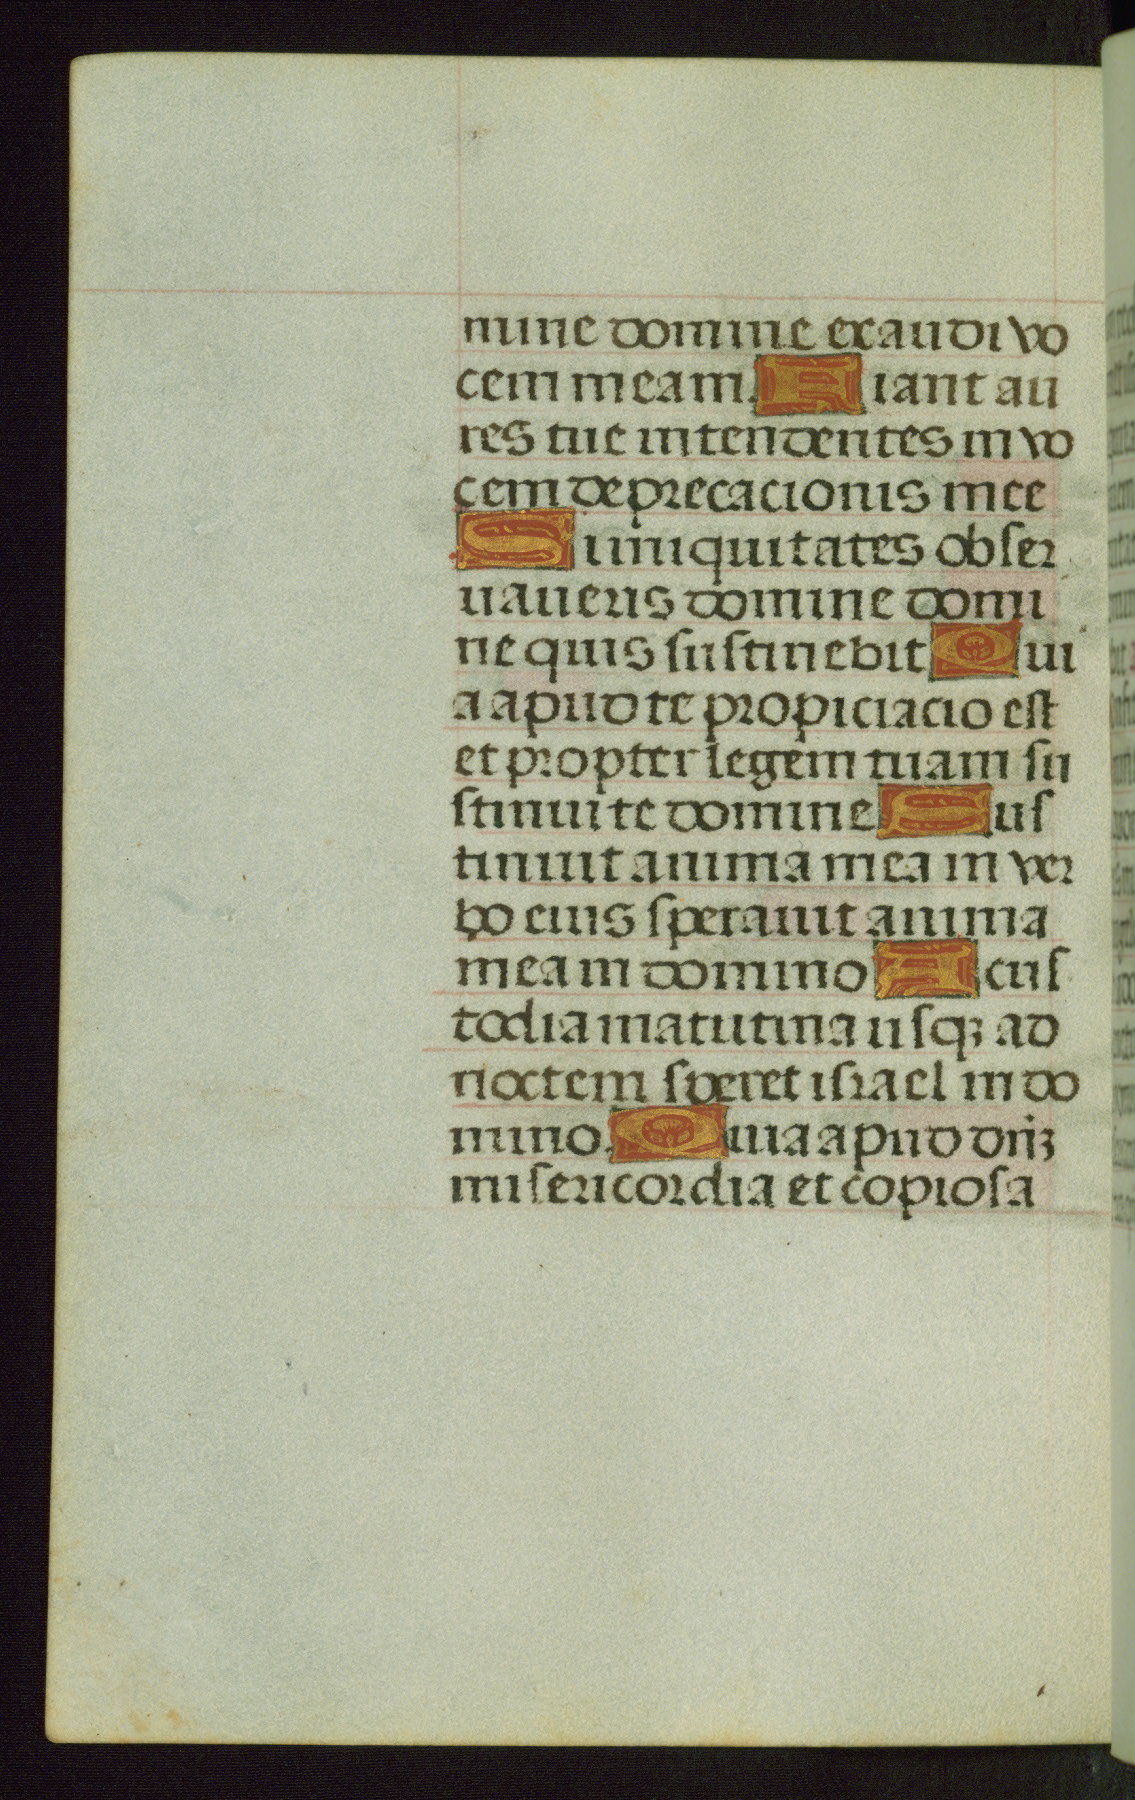 mine domine exaudi vo
cem meam. Fiant au
res tue intendentes in vo
cem deprecacionis mee
Si iniquitates obser
uaueris domine domi
ne quis sustinebit Qui
a apud te propiciacio est
et propter legem tuam su
stinui te domine Sus
tinuit anima mea in ver
bo eius sperauit anima
mea in domino A cus
todia matutina usqꝫ ad
noctem speret israel in do
mino. Quia apud dn̄ꝫ
misericordia et copiosa